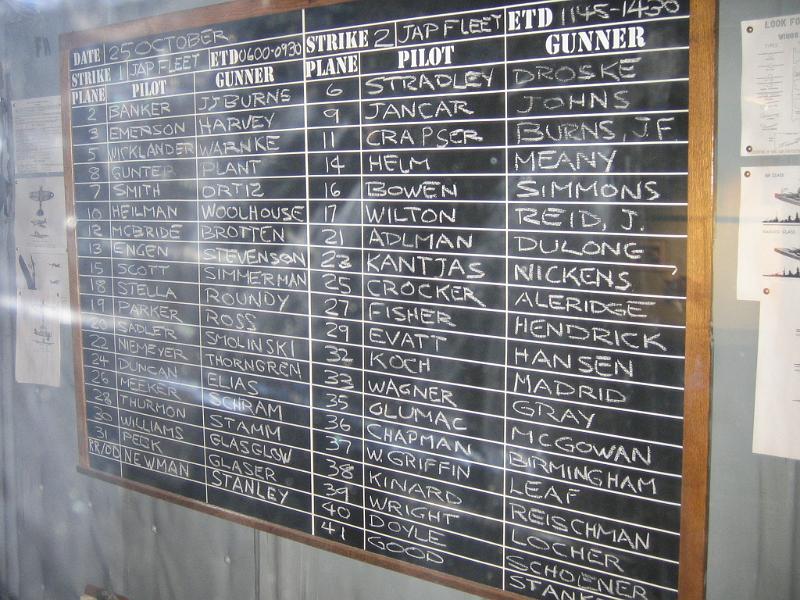 DATE 25 OCTOBER
STRIKE 1 JAP FLEET ETD 0600-0930
PLANE PILOT GUNNER
2 BANKER JJ BURNS
3 EMERSON HARVEY
5 VICKLANDER WARNKE
8 GUNTER PLANT
7 SMITH ORTIZ
10 HEILMAN WOOLHOUSE
12 MCBRIDE BROTTEN
13 ENGEN STEVENSON
15 SCOTT SIMMERMAN
18 STELLA ROUNDY
19 PARKER ROSS
20 SADLER SMOLINSKI
22 NIEMEYER THORNGREN
24 DUNCAN ELIAS
26 MEEKER SCHRAM
28 THURMON STAMM
30 WILLIAMS GLASGLOW
31 PECK GLASER
RR/OD NEWMAN STANLEY
STRIKE 2 JAP FLEET ETD 1145-1430
PLANE PILOT GUNNER
6 STRADLEY DROSKE
9 JANCAR JOHNS
11 CRAPSER BURNS, J.F.
14 HELM MEANY
16 BOWEN SIMMONS
17 WILTON REID, J.
21 ADLMAN DULONG
23 KANTJAS NICKENS
25 CROCKER ALERIDGE
27 FISHER HENDRICK
29 EVATT HANSEN
32 KOCH MADRID
33 WAGNER GRAY
35 GLUMAC MCGOWAN
36 CHAPMAN BIRMINGHAM
37 W. GRIFFIN LEAF
38 KINARD REISCHMAN
39 WRIGHT LOCHER
40 DOYLE SCHOENER
41 GOOD
LOOK FO